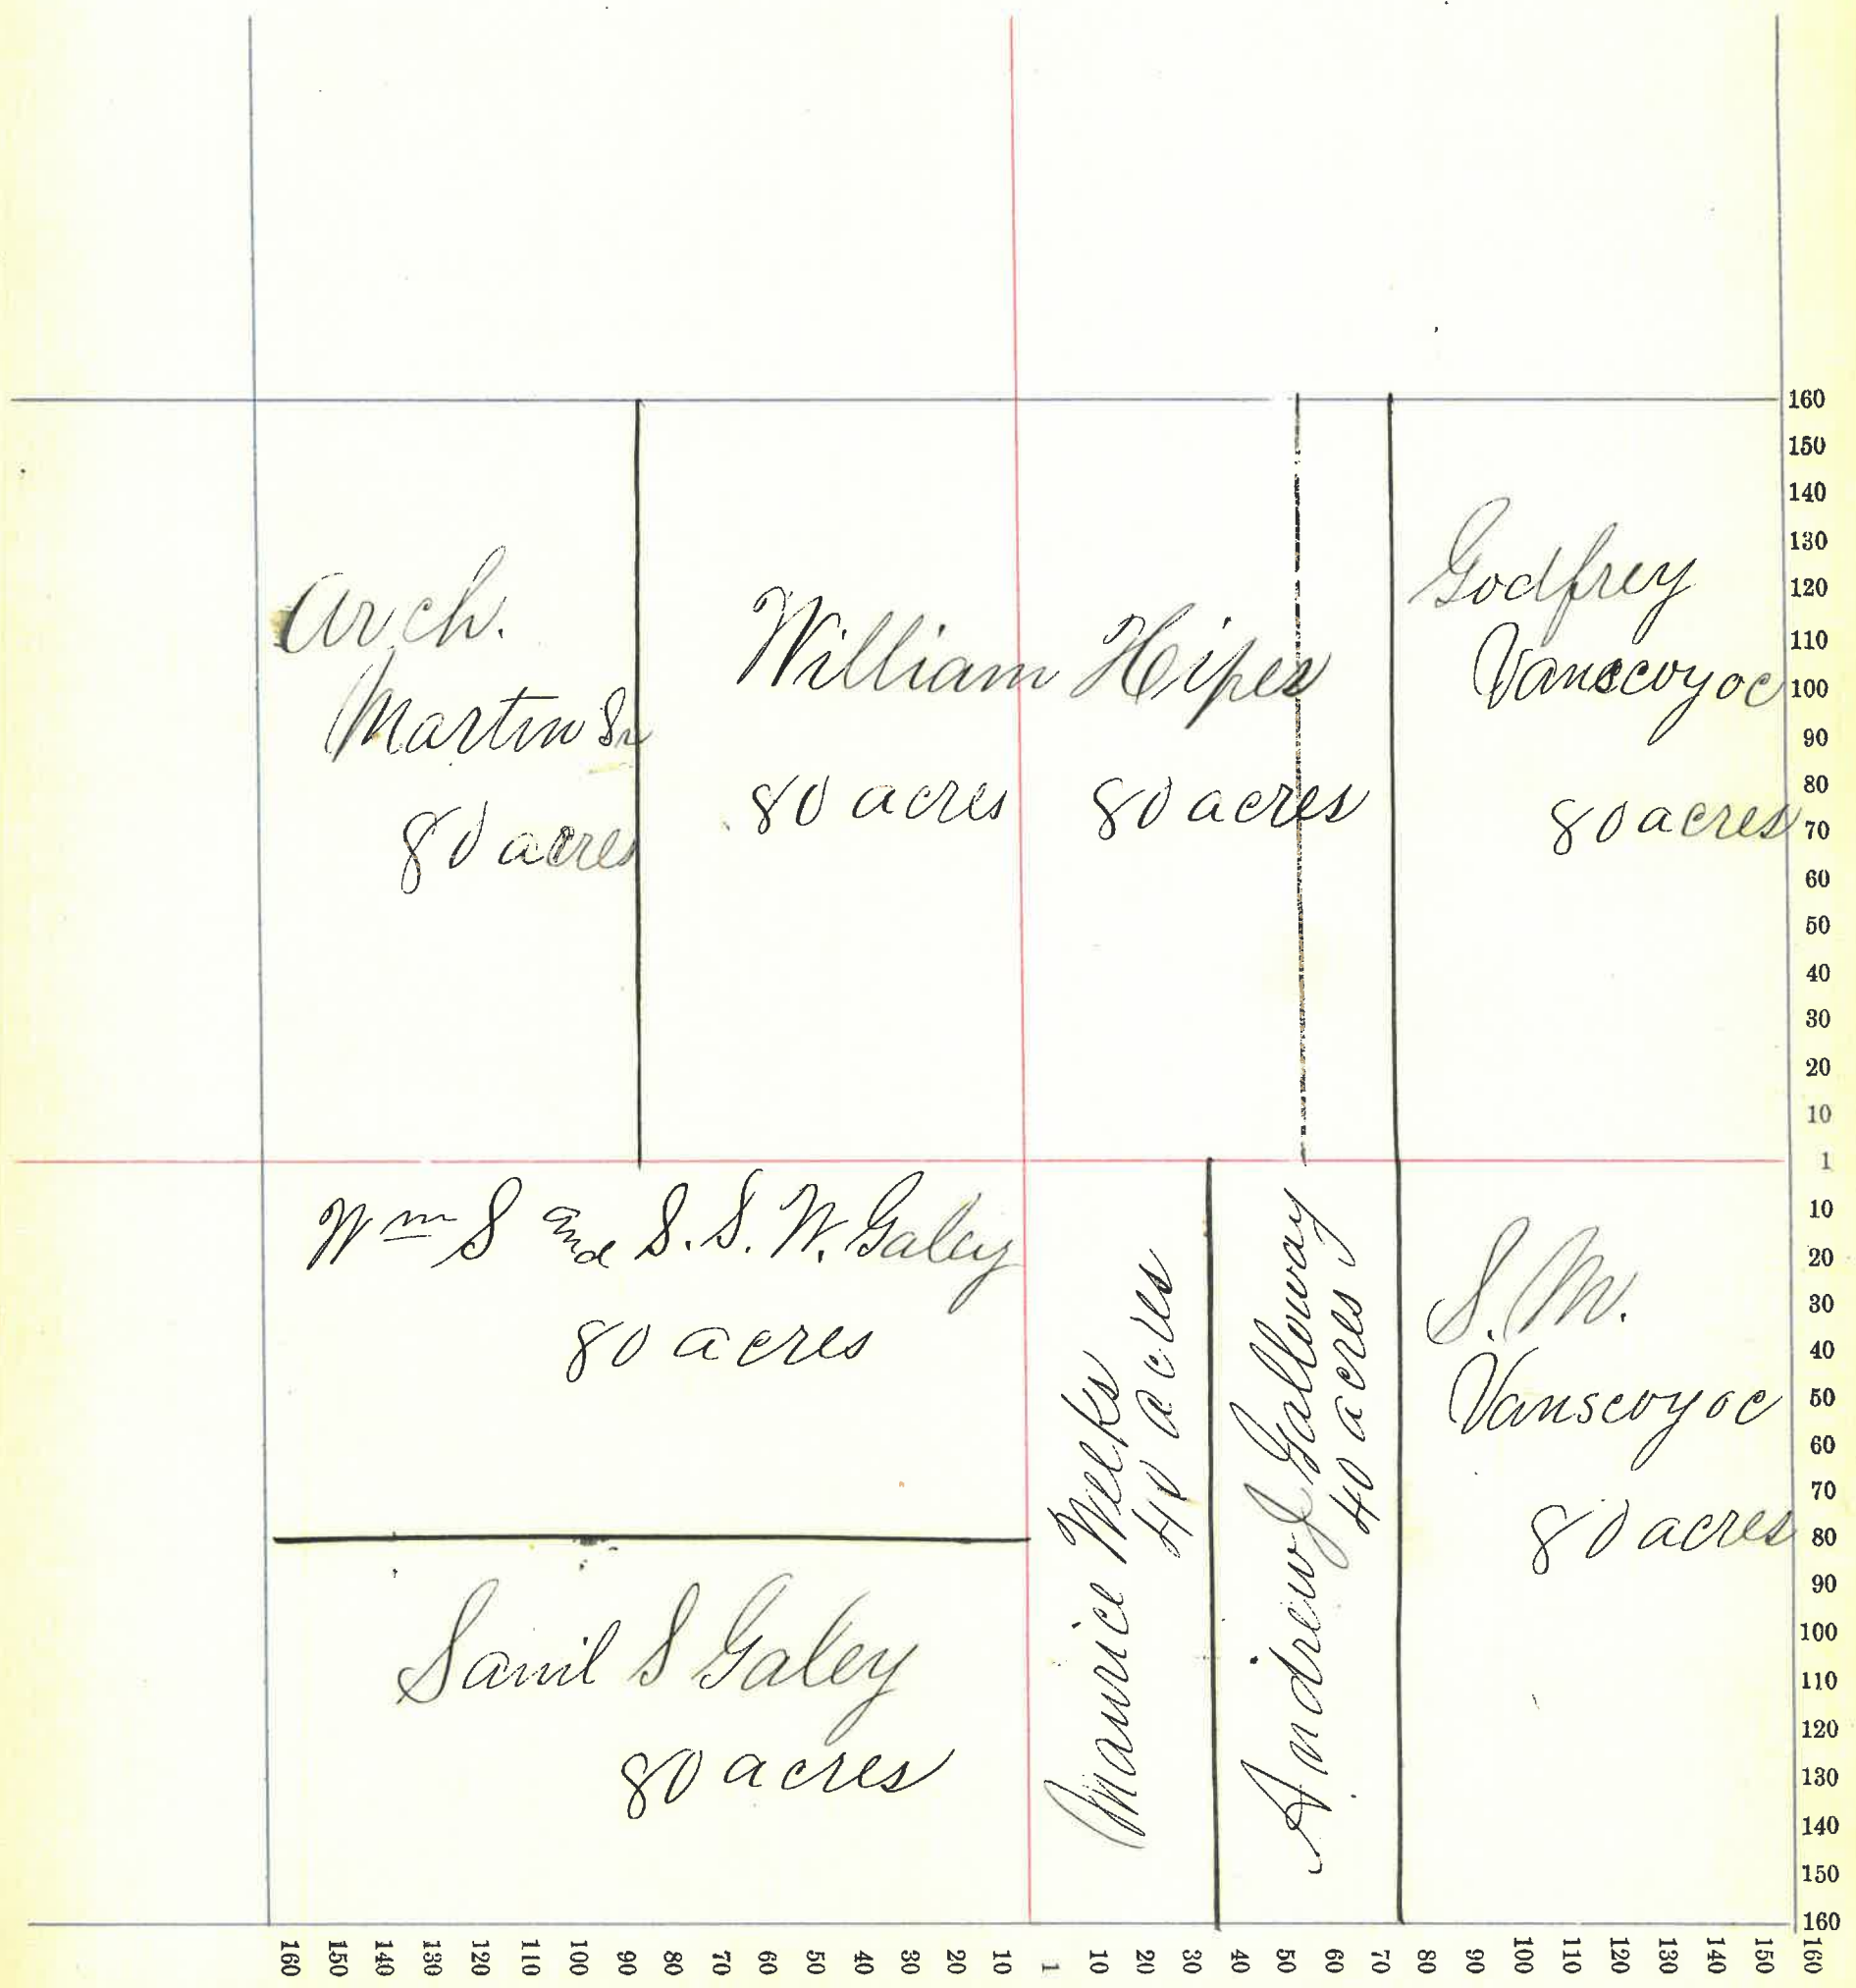 Arch.
Martin Sr
80 acres
William Hipes
80 acres 80 acres
Godfrey
Vanscoyoc
80 acres
Wm S and S. S. W. Galey
80 acres
Saml S Galey
80 acres
Maurice Weeks
40 acres
Andrew J Galloway
40 acres
S. M.
Vanscoyoc
80 acres
160
150
140
130
120
110
100
90
80
70
60
50
40
30
20
10
1
10
20
30
40
50
60
70
80
90
100
110
120
130
140
150
160
160 150 140 130 120 110 100 90 80 70 60 50 40 30 20 10 1 10 20 30 40 50 60 70 80 90 100 110 120 130 140 150 160